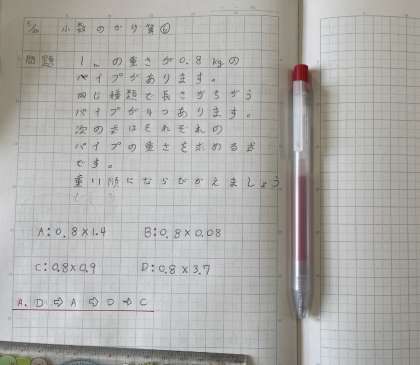 5/20 小数のかけ算⑥
問題 1mの重さが0.8kgの
パイプがあります。
同じ種類で長さがちがう
パイプが4つあります。
次の式はそれぞれの
パイプの重さを求める式
です。
重い順にならびかえましょう
A:0.8×1.4 B:0.8×0.08
C:0.8×0.9 D:0.8×3.7
A. D ⇨ A ⇨ D ⇨ C